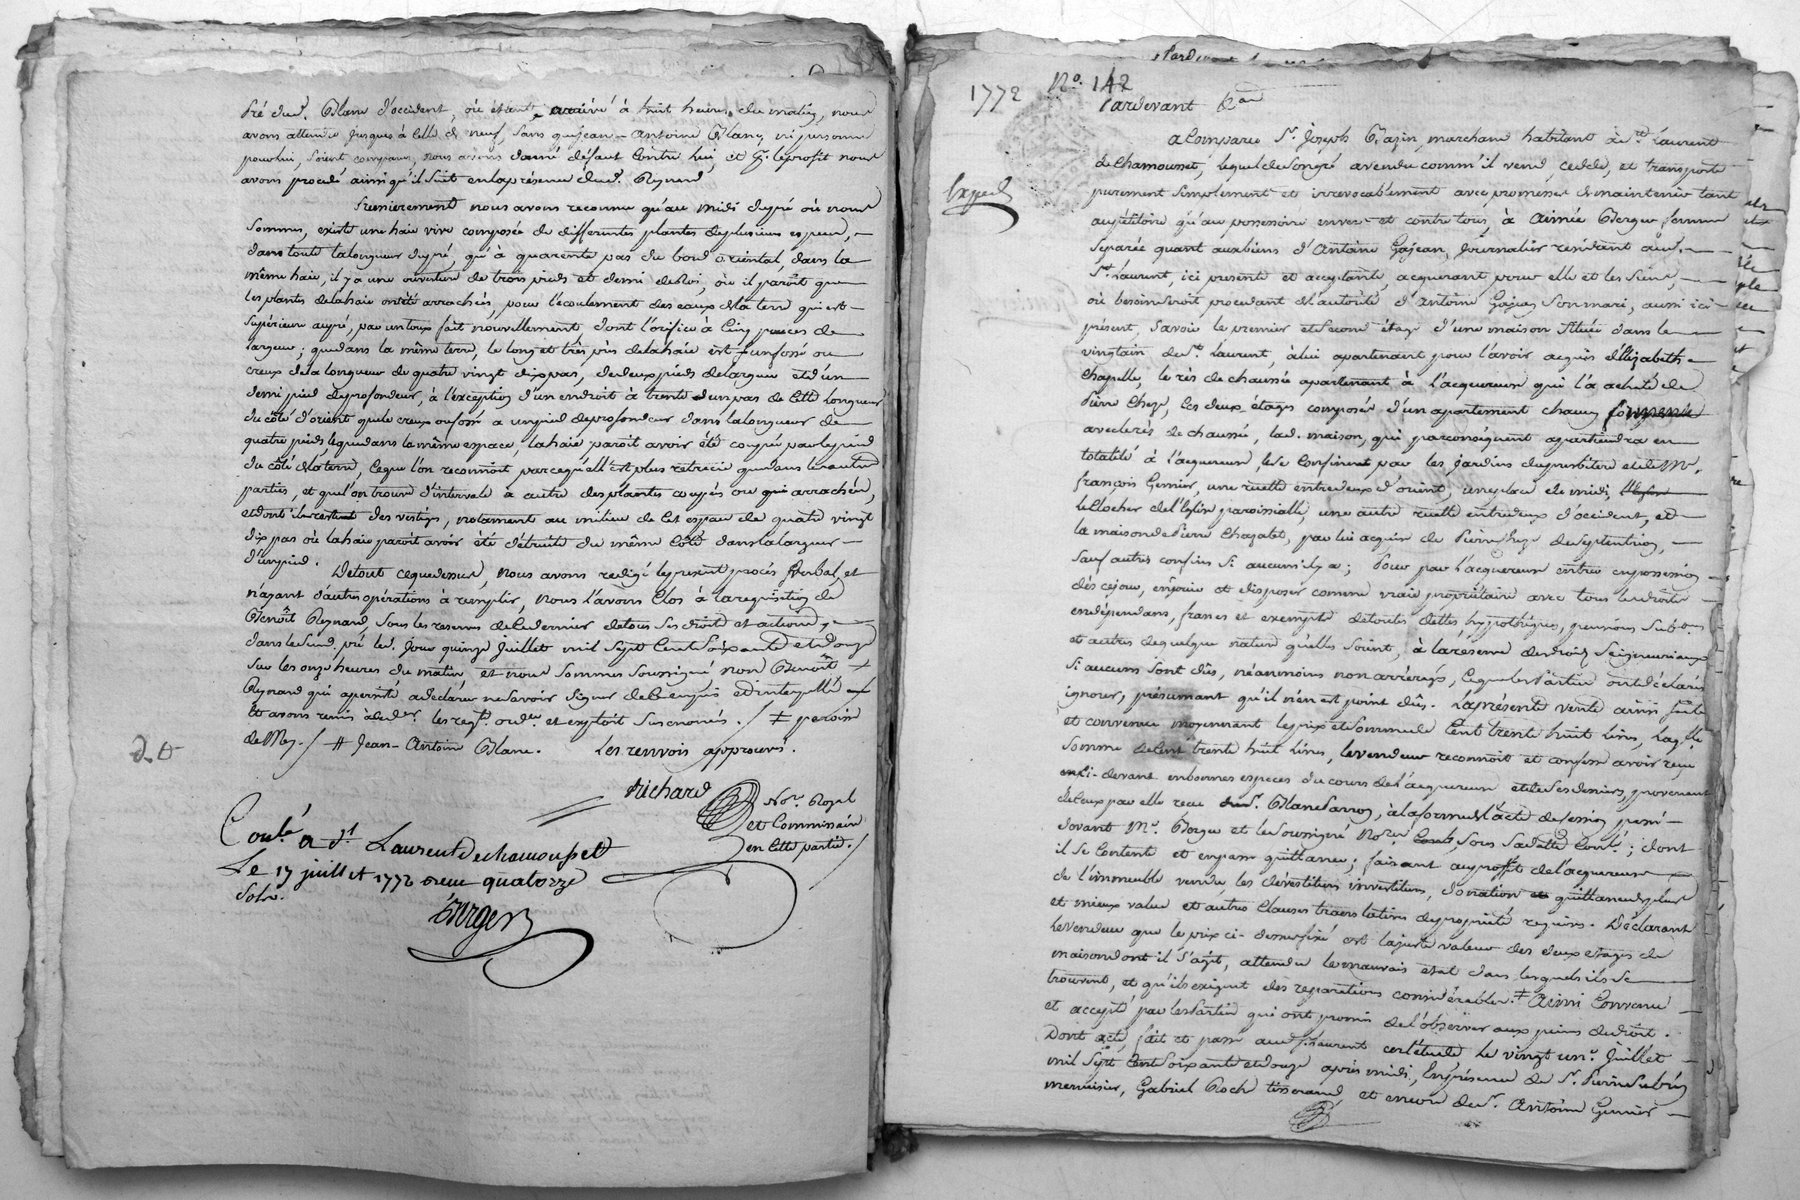 Pré du Sr. Blanc d'occident, où étant arrivé à huit heures du matin, nous
avons attendu jusques à celle de neuf, sans que jean-Antoine Blanc, ni personne
pour lui, soient comparus, nous avons donné défaut contre lui, et pr. le profit nous
avons procédé ainsi qu'il suit en la présence dud. Reynard.
Premierement nous avons reconnu qu'au midi du pré où nous
Sommes, existe une haie vive composée de differentes plantes de plusieurs especes,
dans toute la longueur du pré, qu'à quarente pas du bord oriental dans la
même haie, il y a une ouverture de trois pieds et demi, où il paroît que
les plantes de la haie ont été arrachées, pour l'écoulement des eaux de la terre qui est
Supérieure au pré, par un fait nouvellement dont l'orifice à Cinq pouces de
largeur; que dans la même terre, le long et très près de la haie est un fossé ou
creux de la longueur de quatre vingt dix pas, de deux pieds de largeur et d'un
demi pied de profondeur, à l'exception d'un endroit à trente un pas de cette longueur
du côté d'orient que le creux ou fossé a un pied de profondeur dans la longueur de
quatre pieds, que dans la même espace, la haie paroît avoir été coupée par le pied
du côté de la terre, ce que l'on reconnoit parce qu'elle est plus retrecie que dans les autres
parties, et que l'on trouve d'intervale à autre des plantes coupées ou arrachées,
et dont il reste des vestiges, notament au milieu de cet espace de quatre vingt
dix pas où la haie paroit avoir été détruite du même Côté dans la largeur
d'un pied.
De tout ce que dessus, nous avons redigé le présent procès Verbal, et
n'ayant d'autres opérations à remplir, nous l'avons Clos à la requisition de
Benoît Reynard sous les reserves de ce dernier de tous ses droits et actions,
dans le susd. pré le d. Jour quinze Juillet mil Sept Cent Soixante et douze
sur les onze heures du matin, et nous sommes soussigné non Benoît
Reynard qui a persisté a declarer ne savoir signer de ce enquis et interpellé
et avons remis les req. ord. et exploit sus enoncés. / ≠ paroisse
de Mey. / # Jean-Antoine Blanc. Les renvois approuvés.
Richard
Nore. Royal
et Commissaire
en cette partie. /
d. t
Conlé. a St. Laurent de chamousset
Le 17 juillet 1772 reçu quatorze
Sols.
Berger
1772 No. 142
Pardevant &a.
Exped
a Comparu Sr. Joseph Bazin, marchand habitant à St. Laurent
de chamousset, lequel de son gré a vendu comm'il vend, cedde, et transporte
purement simplement et irrevocablement avec promesse de maintenir tant
au petitoire qu'au possessoire envers et contre tous, à Aimée Berger femme
séparée quant aux biens d'Antoine Gajean, journalier residant aud.
St. Laurent, ici presente et acceptante, acquerant pour elle et les siens,
où besoin seroit procedant de l'autorité d'Antoine Gajean son mari, aussi ici
présent, savoir le premier et second étage d'une maison située dans le
vingtain de St. Laurent, à lui apartenant pour l'avoir acquis d'Elizabeth
Chapelle, le rès de chaussée apartenant à l'acquereuse qui l'a acheté de
Pierre Cheze, les deux étages composés d'un apartement chacun
avec le rès de chaussée, lad. maison, qui par conséquent apartiendra en
totalité à l'acquereuse, se confinent par les jardins du presbitère et de Mr.
françois Gonnier, une ruette entre deux d'orient, une place de midi,
le clocher de l'Eglise paroissialle, une autre ruette entre deux d'occident, et
la maison de Pierre Chazalet, par lui acquise de Pierre Cheze de septentrion,
sauf autres confins si aucuns il y a; Pour par l'acquereuse entrer en possession
dès ce jour, en jouir et disposer comme vraie propriétaire avec tous les droits
en dépendans, francs et exempts de toutes dettes, hypothèques, pensions, substons
et autres de quelque nature qu'elles soient, à la reserve des droits seigneuriaux
si aucuns sont dûs, néanmoins non arréragés, lesquels les Parties ont déclarés
ignorer, présumant qu'il n'en est point dûs. La présente vente ainsi faite
et convenue moyennant le prix et somme de Cent trente huit livres, laqlle.
somme de cent trente huit livres, le vendeur reconnoit et confesse avoir reçu
ci-devant en bonnes especes du cours de l'acquereuse et de ses deniers, provenant
de ceux par elle reçu du Sr. Blanc Sarron, à la forme de l'acte de cession passé
devant Me. Berger et le soussigné Nore. sous sa datte Conlé.; dont
il se contente et en passe quittance; faisant au profit de l'acquereuse
de l'immeuble vendu, les dévestitures investitures, donation quittance de plus
et mieux value et autres clauses translatives de proprieté requises. Déclarant
le vendeur que le prix ci-dessus fixé est la juste valeur des deux étages de
maison dont il s'agit, attendu le mauvais etat dans lesquels ils se
trouvent, et qu'ils exigent des reparations considérables. ≠ Ainsi convenu
et accepté par les Parties qui ont promis de l'observer aux peines de droit.
Dont acte, fait et passé aud. St. Laurent en l'étude le vingt un Juillet
mil sept cent soixante et douze après midi, En présence de Sr. Pierre
menuisier, Gabriel Roch tisserand, et encore de Sr. Antoine Gonnier